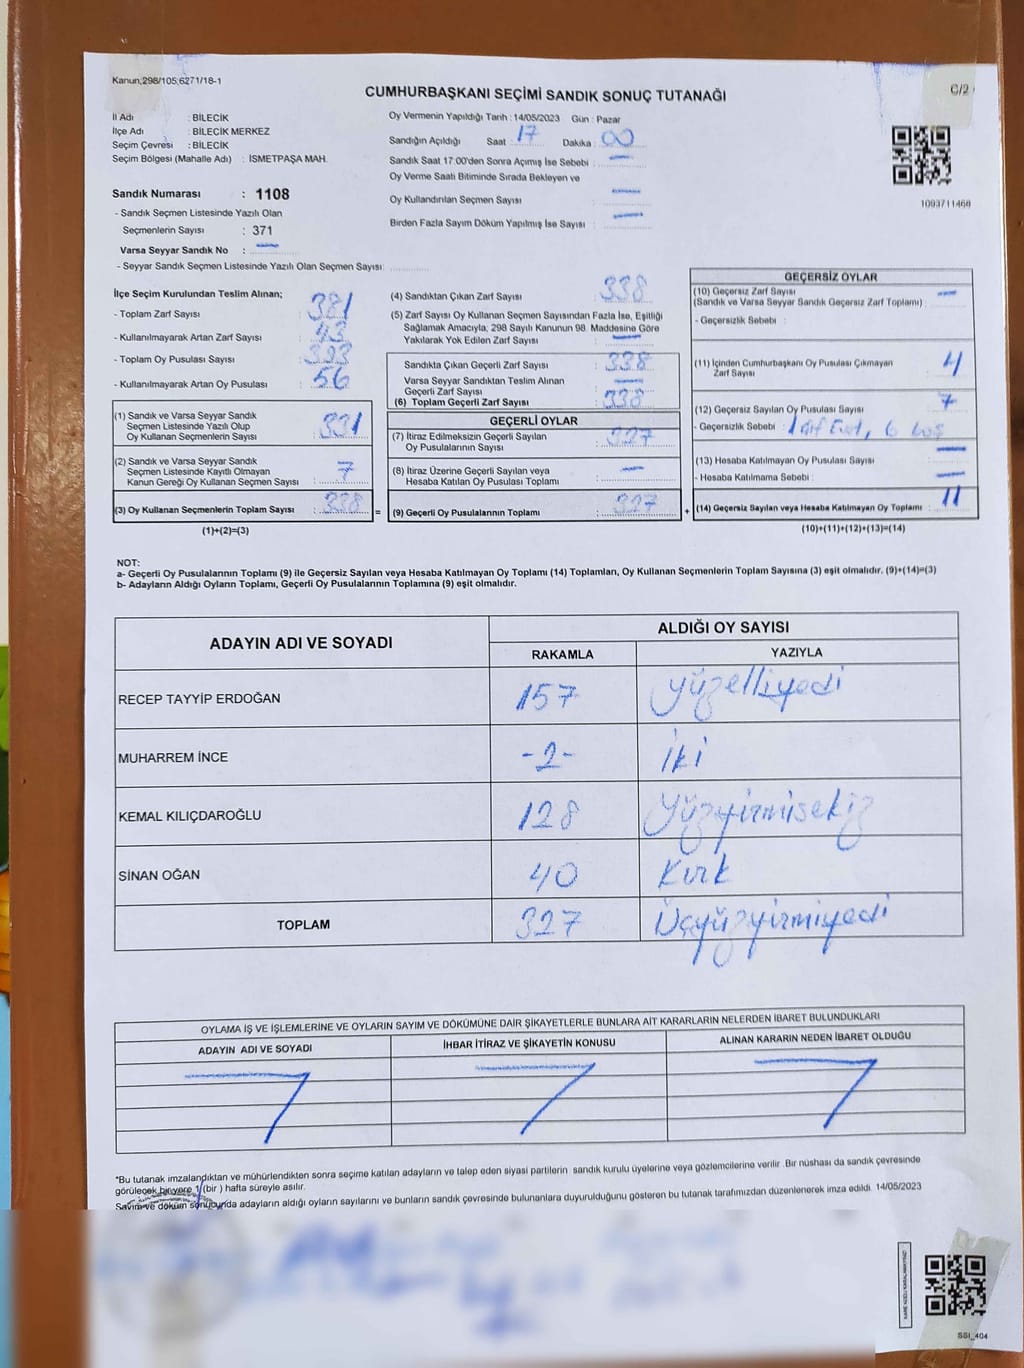 Kanun;298/105;6271/18-1
C/2
CUMHURBAŞKANI SEÇİMİ SANDIK SONUÇ TUTANAĞI
İl Adı : BİLECİK
İlçe Adı : BİLECİK MERKEZ
Seçim Çevresi : BİLECİK
Seçim Bölgesi (Mahalle Adı) : İSMETPAŞA MAH.
Oy Vermenin Yapıldığı Tarih :14/05/2023 Gün : Pazar
Sandığın Açıldığı Saat 17 Dakika 00
Sandık Saat 17:00'den Sonra Açımış İse Sebebi : —
Oy Verme Saati Bitiminde Sırada Bekleyen ve
Oy Kullandırılan Seçmen Sayısı : —
Birden Fazla Sayım Döküm Yapılmış İse Sayısı : —
1093711468
Sandık Numarası : 1108
- Sandık Seçmen Listesinde Yazılı Olan
Seçmenlerin Sayısı : 371
Varsa Seyyar Sandık No : —
- Seyyar Sandık Seçmen Listesinde Yazılı Olan Seçmen Sayısı:
İlçe Seçim Kurulundan Teslim Alınan;
- Toplam Zarf Sayısı : 381
- Kullanılmayarak Artan Zarf Sayısı : 43
- Toplam Oy Pusulası Sayısı :
- Kullanılmayarak Artan Oy Pusulası : 56
(1) Sandık ve Varsa Seyyar Sandık
Seçmen Listesinde Yazılı Olup
Oy Kullanan Seçmenlerin Sayısı : 331
(2) Sandık ve Varsa Seyyar Sandık
Seçmen Listesinde Kayıtlı Olmayan
Kanun Gereği Oy Kullanan Seçmen Sayısı : 7
(3) Oy Kullanan Seçmenlerin Toplam Sayısı : 338 =
(1)+(2)=(3)
(4) Sandıktan Çıkan Zarf Sayısı : 338
(5) Zarf Sayısı Oy Kullanan Seçmen Sayısından Fazla İse, Eşitliği
Sağlamak Amacıyla; 298 Sayılı Kanunun 98. Maddesine Göre
Yakılarak Yok Edilen Zarf Sayısı : —
Sandıkta Çıkan Geçerli Zarf Sayısı : 338
Varsa Seyyar Sandıktan Teslim Alınan
Geçerli Zarf Sayısı : —
(6) Toplam Geçerli Zarf Sayısı : 338
GEÇERLİ OYLAR
(7) İtiraz Edilmeksizin Geçerli Sayılan
Oy Pusulalarının Sayısı : 327
(8) İtiraz Üzerine Geçerli Sayılan veya
Hesaba Katılan Oy Pusulası Toplamı : —
(9) Geçerli Oy Pusulalarının Toplamı : 327 +
GEÇERSİZ OYLAR
(10) Geçersiz Zarf Sayısı : —
(Sandık ve Varsa Seyyar Sandık Geçersiz Zarf Toplamı)
- Geçersizlik Sebebi :
(11) İçinden Cumhurbaşkanı Oy Pusulası Çıkmayan
Zarf Sayısı : 4
(12) Geçersiz Sayılan Oy Pusulası Sayısı : 7
- Geçersizlik Sebebi : 1 Evet, 6 boş
(13) Hesaba Katılmayan Oy Pusulası Sayısı : —
- Hesaba Katılmama Sebebi : —
(14) Geçersiz Sayılan veya Hesaba Katılmayan Oy Toplamı : 11
(10)+(11)+(12)+(13)=(14)
NOT:
a- Geçerli Oy Pusulalarının Toplamı (9) ile Geçersiz Sayılan veya Hesaba Katılmayan Oy Toplamı (14) Toplamları, Oy Kullanan Seçmenlerin Toplam Sayısına (3) eşit olmalıdır. (9)+(14)=(3)
b- Adayların Aldığı Oyların Toplamı, Geçerli Oy Pusulalarının Toplamına (9) eşit olmalıdır.
ADAYIN ADI VE SOYADI ALDIĞI OY SAYISI
RAKAMLA YAZIYLA
RECEP TAYYİP ERDOĞAN 157 yüzelliyedi
MUHARREM İNCE -2- İki
KEMAL KILIÇDAROĞLU 128 Yüzyirmisekiz
SİNAN OĞAN 40 Kırk
TOPLAM 327 Üçyüzyirmiyedi
OYLAMA İŞ VE İŞLEMLERİNE VE OYLARIN SAYIM VE DÖKÜMÜNE DAİR ŞİKAYETLERLE BUNLARA AİT KARARLARIN NELERDEN İBARET BULUNDUKLARI
ADAYIN ADI VE SOYADI İHBAR İTİRAZ VE ŞİKAYETİN KONUSU ALINAN KARARIN NEDEN İBARET OLDUĞU
*Bu tutanak imzalandıktan ve mühürlendikten sonra seçime katılan adayların ve talep eden siyasi partilerin sandık kurulu üyelerine veya gözlemcilerine verilir. Bir nüshası da sandık çevresinde
görülecek bir yere 1 (bir) hafta süreyle asılır.
Sayım ve döküm sonucunda adayların aldığı oyların sayılarını ve bunların sandık çevresinde bulunanlara duyurulduğunu gösteren bu tutanak tarafımızdan düzenlenerek imza edildi. 14/05/2023
SSI_404